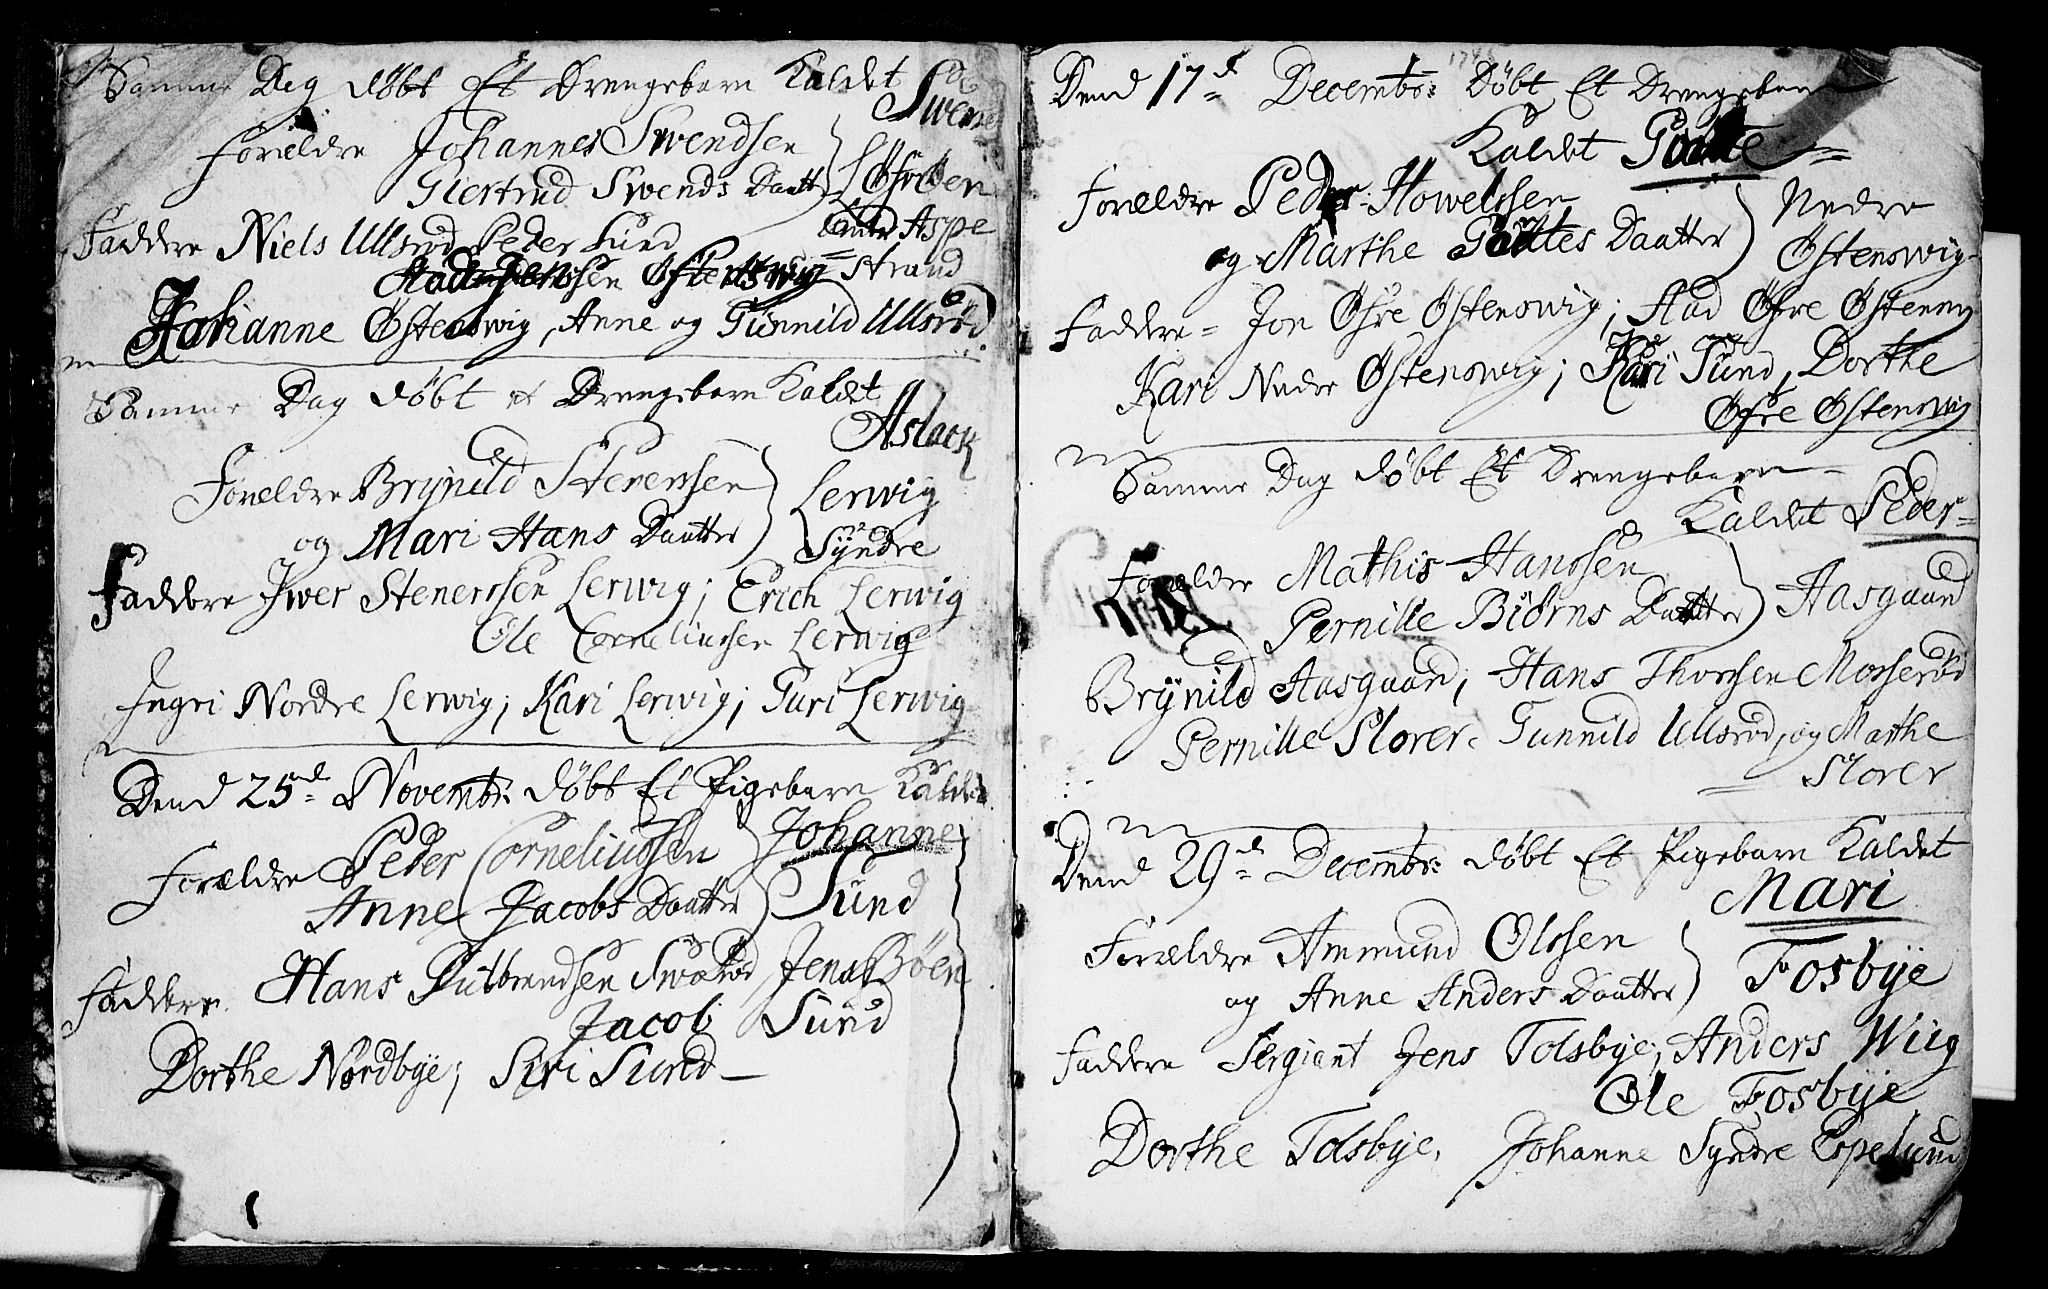 Samme Dag döbt Et Drengebarn Kaldet
Swend
Forældre Johannes Swendsen
Giertrud Swends Daatter
Öfre
Aspe
Faddere Niels Ullsröd Peder Lund
Östenswig Strand
Johanne Östenswig, Anne og Gunnild Ullsröd.
Samme Dag döbt et Drengebarn Kaldet
Aslack
Forældre Brÿnild Stenerssen
og Mari Hans Daatter
Lerwig
Sÿndre
Faddere Iwer Stenerssen Lerwig; Erich Lerwig
Ole Corneliussen Lerwig
Ingri Nordre Lerwig; Kari Lerwig; Guri Lerwig
Dend 25d Novembr: döbt Et Pigebarn Kaldet
Johanne
Forældre Peder Corneliussen
Anne Jacobs Daatter
Sund
Faddere Hans Gulbrendsen Jens Böen
Jacob Sund
Dorthe Nordbÿe; Siri Sund
Dend 17d Decembr: Döbt Et Drengebarn
Kaldet
Forældre Peder Howelssen
og Marthe Daatter
Nedre
Östenswig
Faddere Jon Öfre Östenswig; Öfre Östenswig
Kari Nedre Östenswig; Kari Sund, Dorthe
Öfre Östenswig
Samme Dag döbt Et Drengebarn
Kaldet Peder
Forældre Mathis Hanssen
Pernille Biörns Daatter
Aasgaard
Brÿnild Aasgaard; Hans Thorssen Mosseröd
Pernille Slorer. Gunnild Ullsröd, og Marthe
Slorer
Dend 29d Decembr: döbt Et Pigebarn Kaldet
Mari
Forældre Ammund Olssen
og Anne Anders Daatter
Fosbÿe
Faddere Sergiant Jens Tolsbÿe, Anders Wiig
Ole Fosbÿe
Dorthe Tolsbÿe, Johanne Sÿndre Espelund